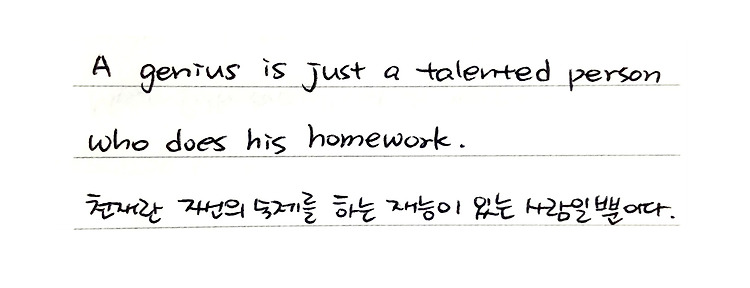 A genius is just a talented person
who does his homework.
천재란 자신의 숙제를 하는 재능이 있는 사람일뿐이다.